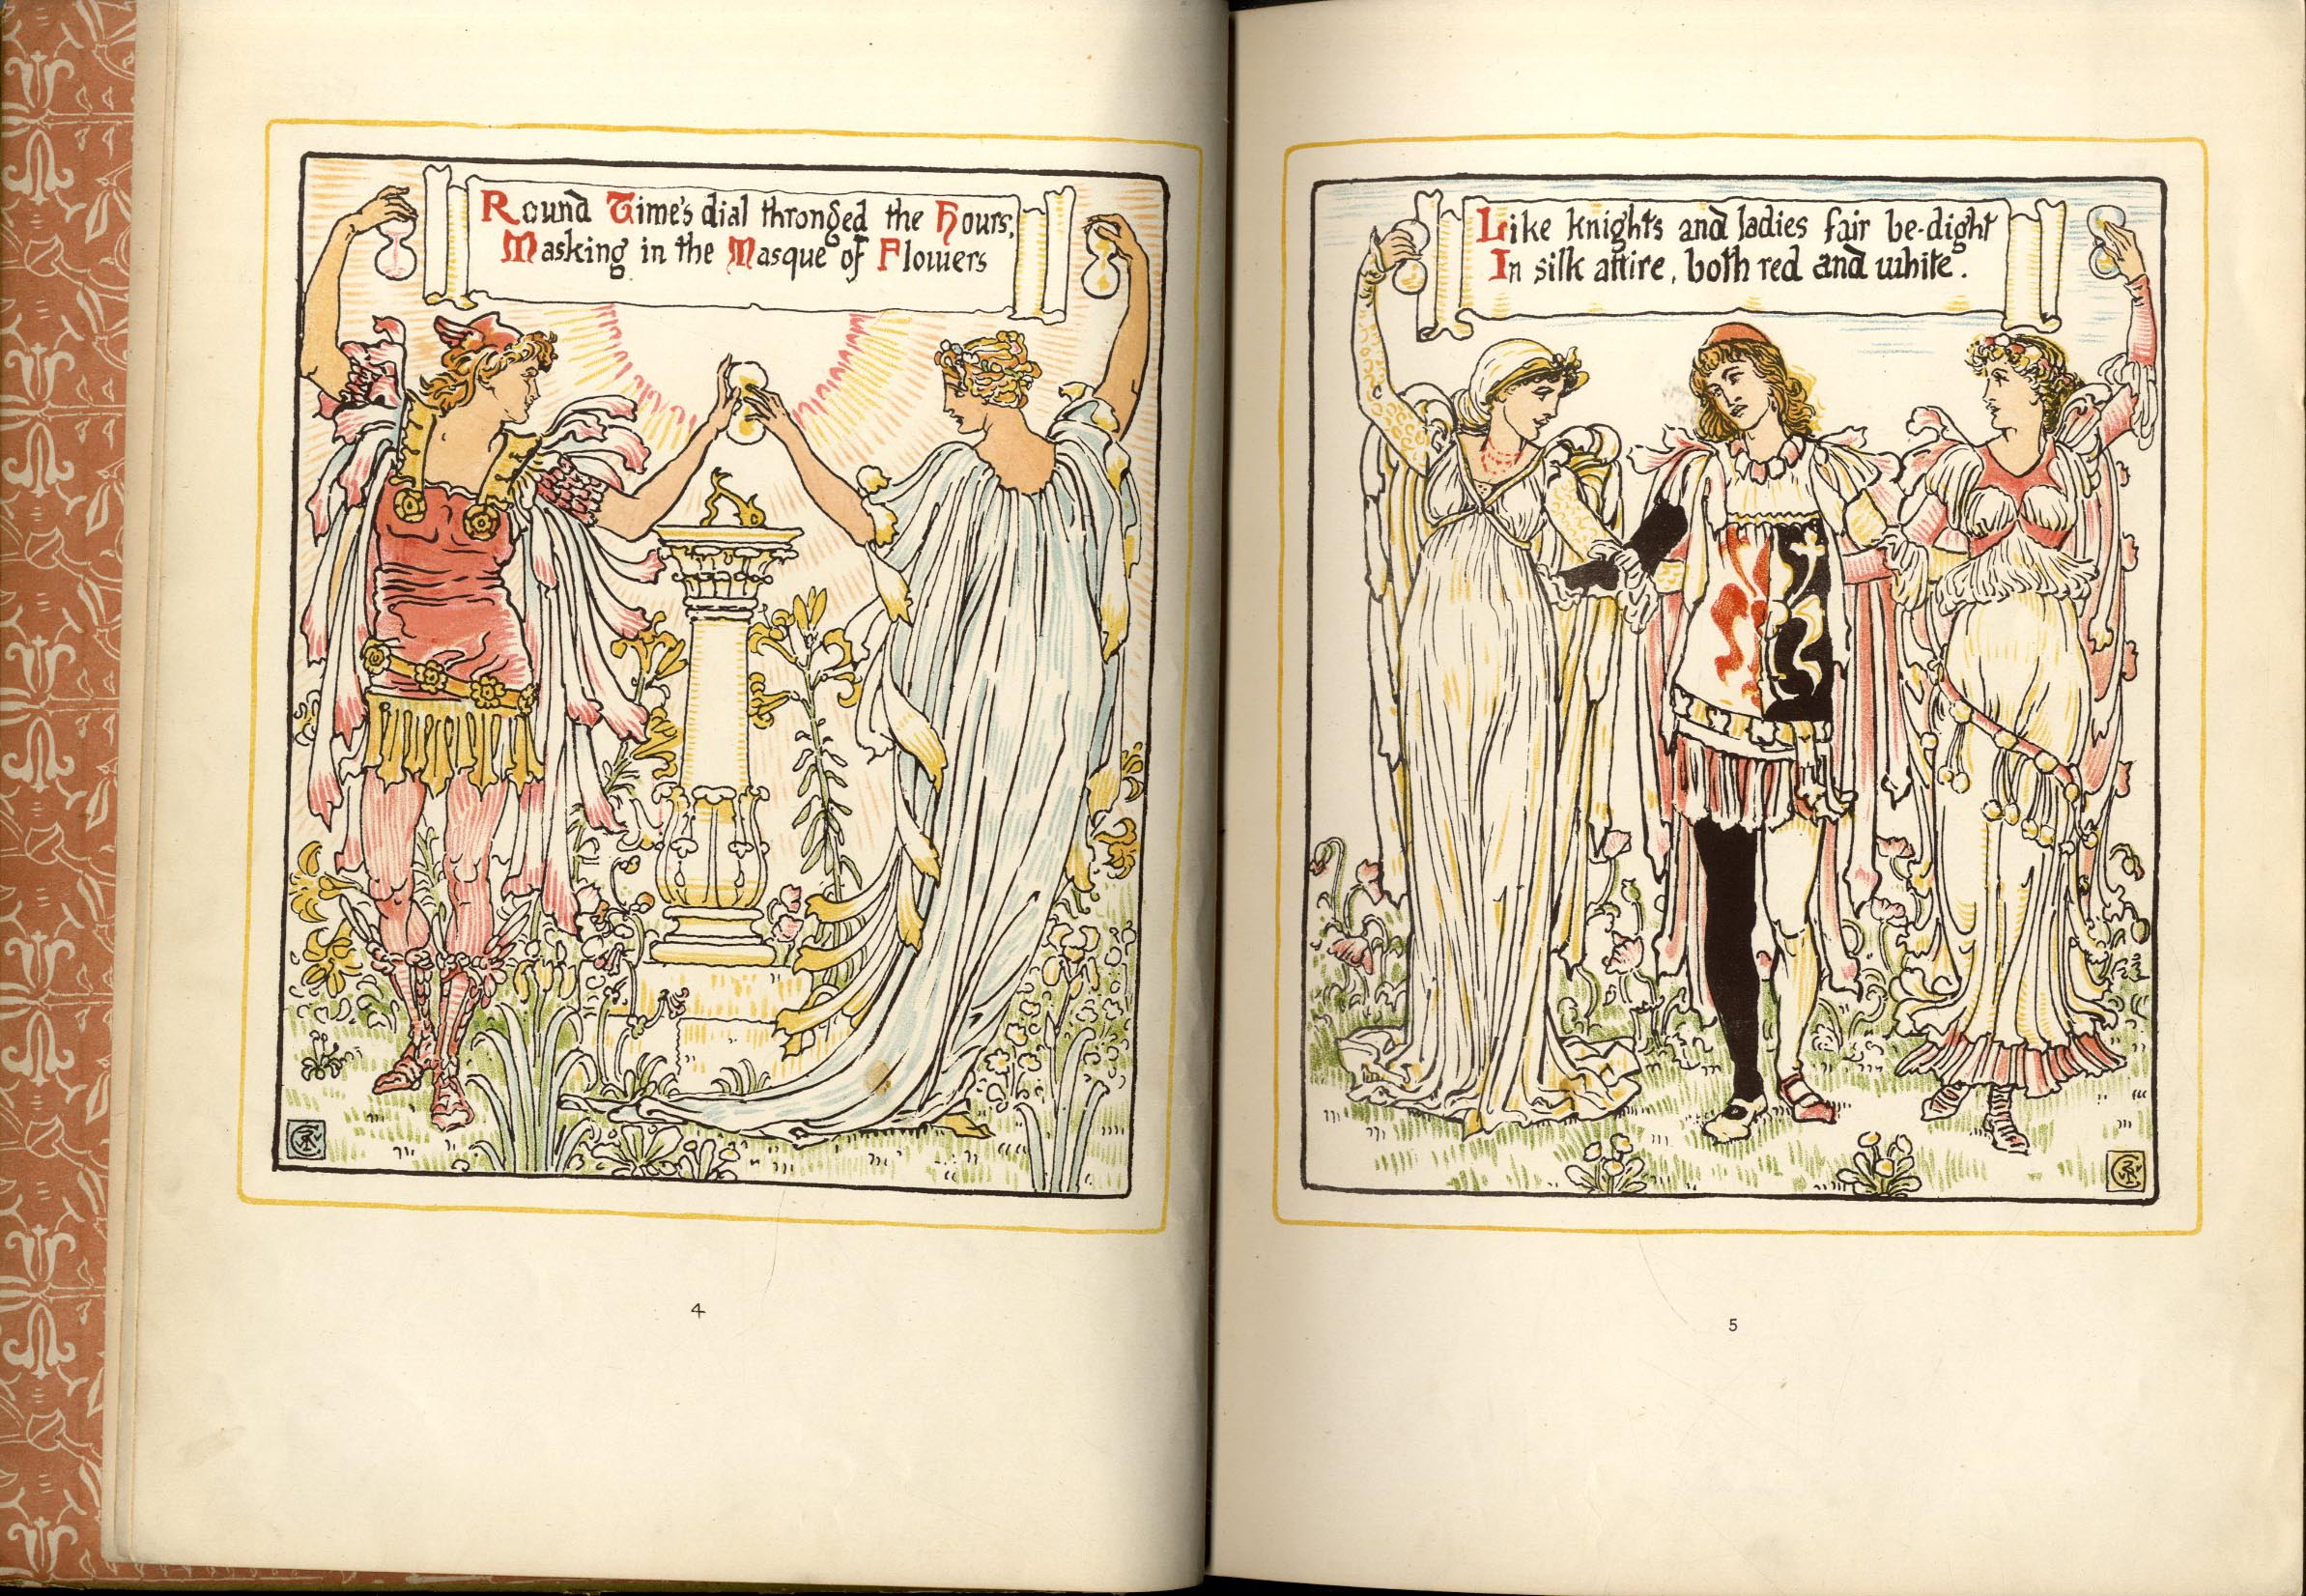 Round Time's dial thronged the Hours,
Masking in the Masque of Flowers
4
Like knights and ladies fair be-dight
In silk attire, both red and white.
5